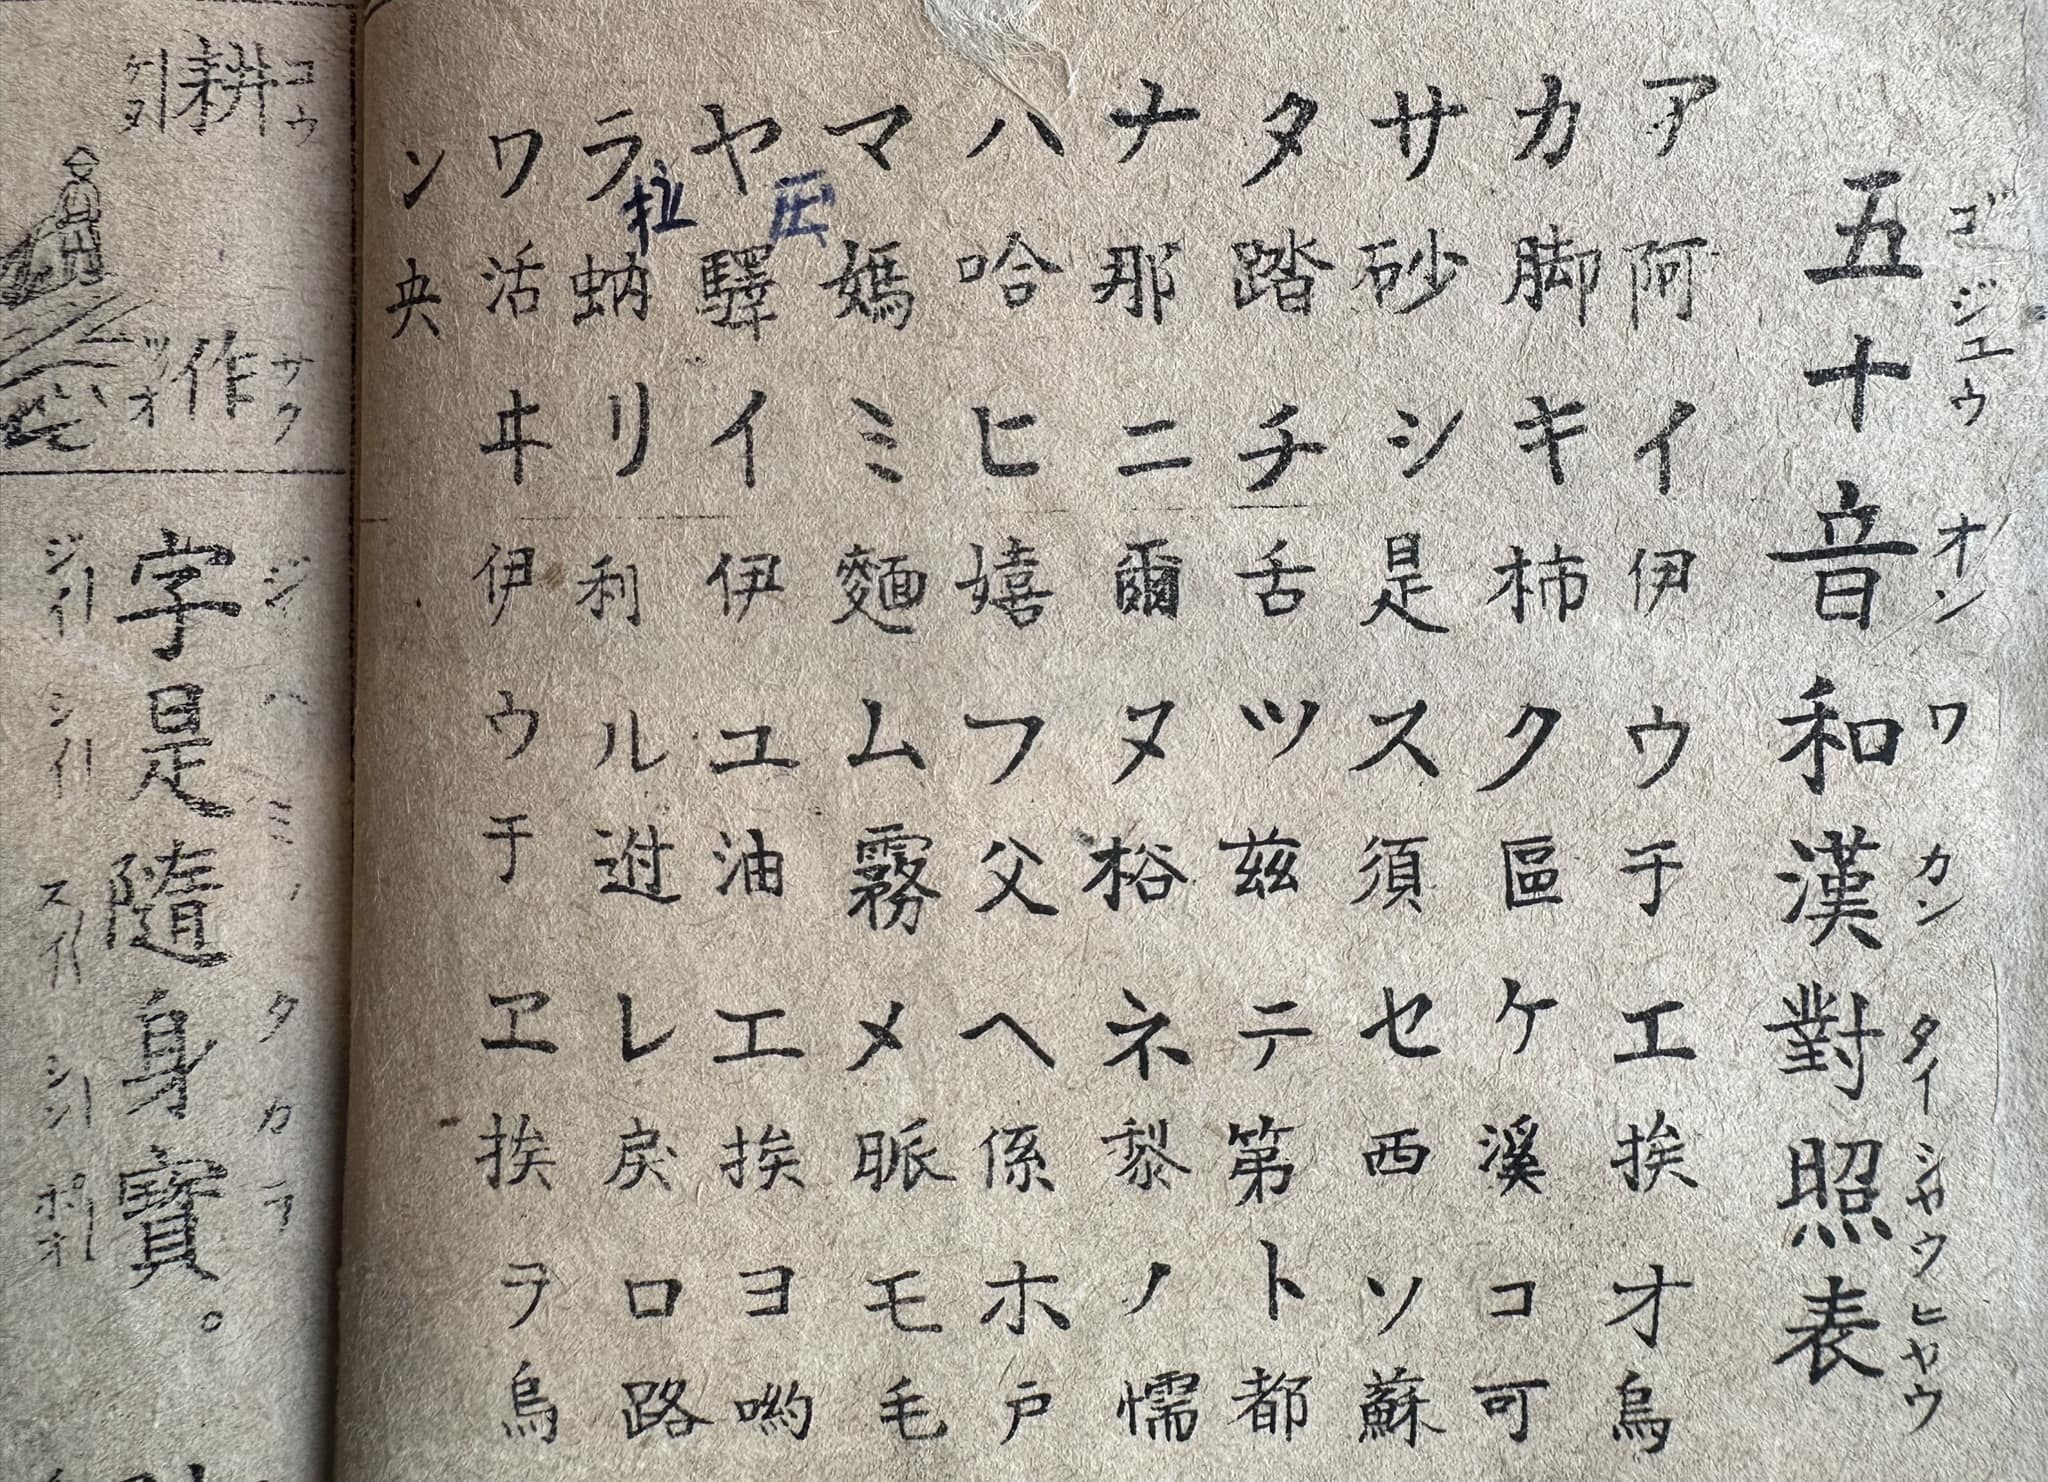 五十音和漢對照表
ゴジユウ オン ワ カン タイ シヤウ ヒヤウ
ア 阿 イ 伊 ウ 于 エ 挨 オ 烏
カ 脚 キ 柿 ク 區 ケ 溪 コ 可
サ 砂 シ 是 ス 須 セ 西 ソ 蘇
タ 踏 チ 舌 ツ 玆 テ 第 ト 都
ナ 那 ニ 爾 ヌ 㭲 ネ 黎 ノ 懦
ハ 哈 ヒ 嬉 フ 父 ヘ 係 ホ 戸
マ 媽 ミ 麵 ム 霧 メ 脈 モ 毛
ヤ 驛 イ 伊 ユ 油 エ 挨 ヨ 喲
ラ 蚋 リ 利 ル レ 戾 ロ 路
拉
ワ 活 ヰ 伊 ウ 于 ヱ 挨 ヲ 烏
ン 央
コウ サク
耕作
ツオ
ジ ハ ミ ノ タカラ
字是隨身寶。
ジイ シイ スイ シン ポオ